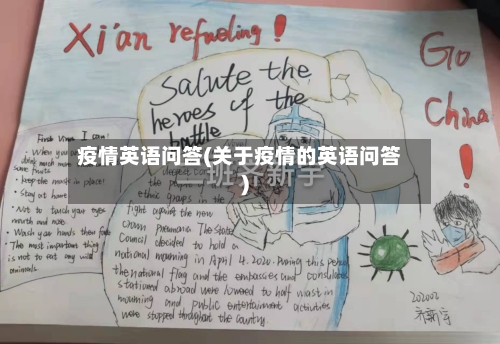 Xi'an refueling!
Go
China!
Salute the
heroes of the
battle
First Virus I can
· When you
drink much more
some fruits
· keep the mask in place!
· Stay at home
· Not to touch your eyes
mouth and nose.
· Wash your hands
· The most important thing
is not to eat any wild
animals.
疫情英语问答(关于疫情的英语问答
)
二班齐新宇
ethnic groups in the
fight against the new
crown Pneumonia The State
Council decided to hold a
national mourning in April 4.2020. During this period
the national flag and the embassies and consulates
stationed abroad were lowered to half mast in
mourning and public entertainment activities
were stopped throughout the country.
齐新宇